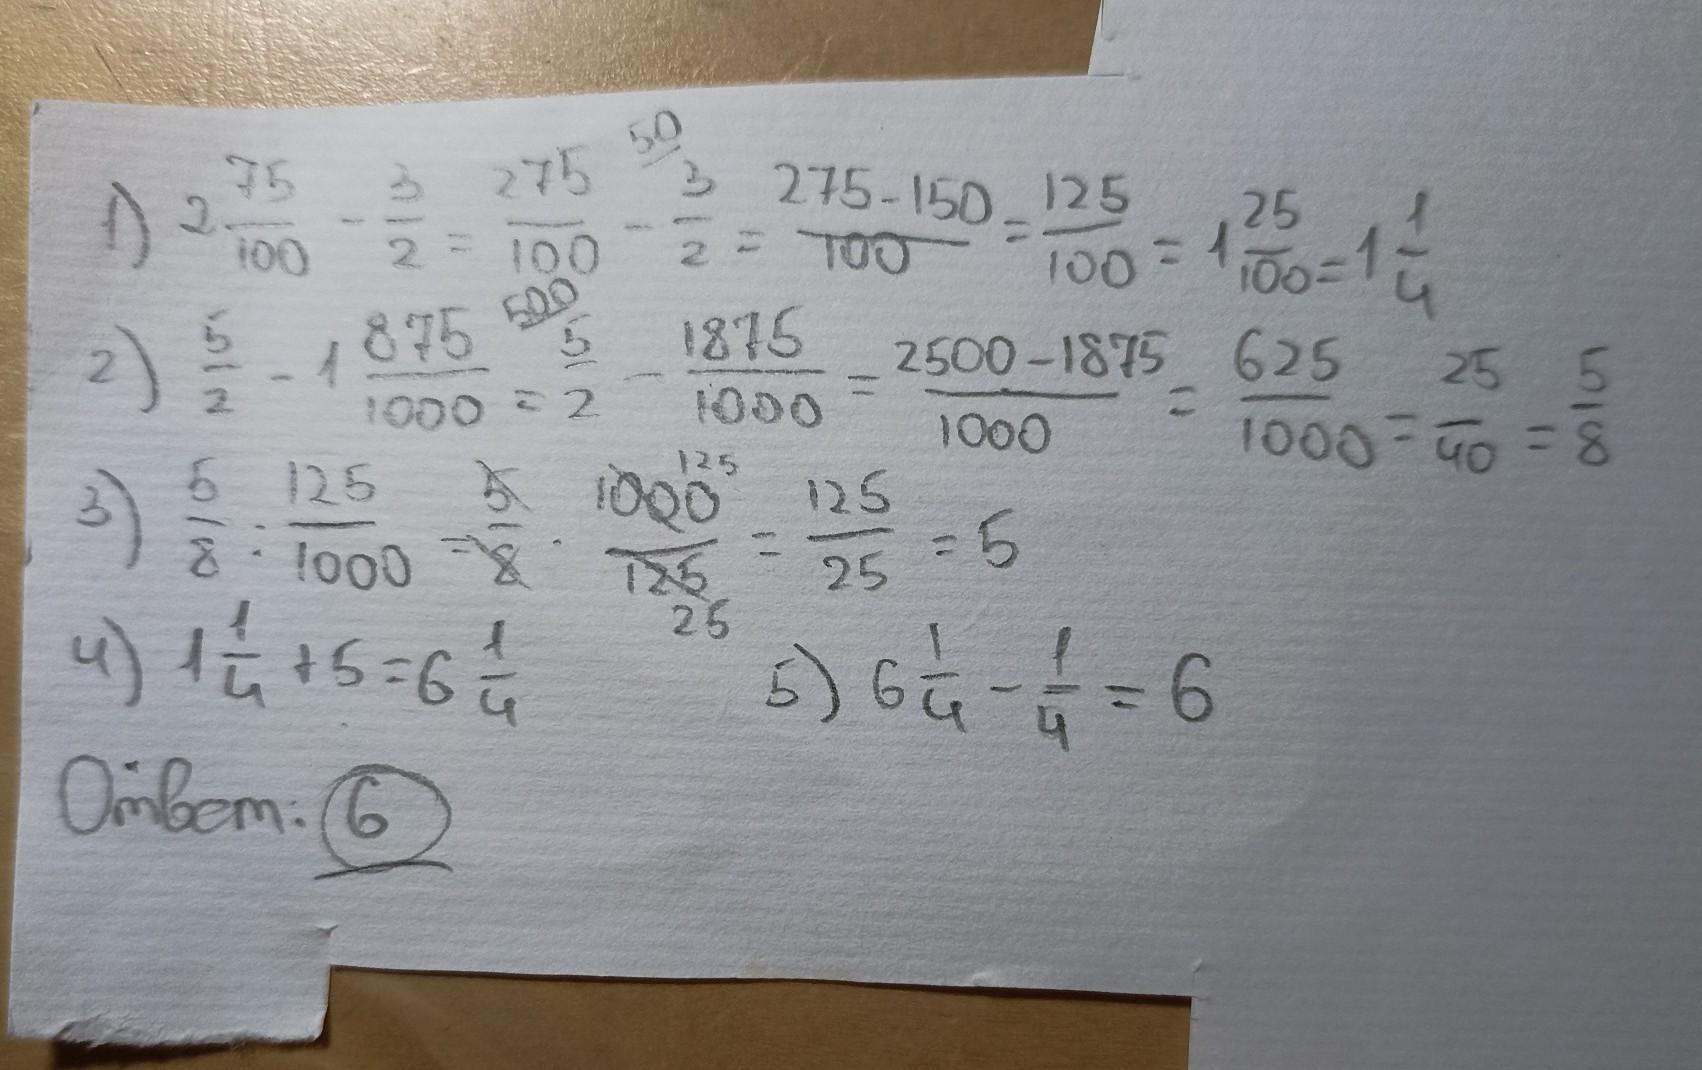 1) 2 75/100 - 3/2 = 275/100 - 50 3/2 = 275-150/100 = 125/100 = 1 25/100 = 1 1/4
2) 5/2 - 1 875/1000 = 500 5/2 - 1875/1000 = 2500-1875/1000 = 625/1000 = 25/40 = 5/8
3) 5/8 : 125/1000 = 5/8 · 1000 125/125 25 = 125/25 = 5
4) 1 1/4 + 5 = 6 1/4 5) 6 1/4 - 1/4 = 6
Ответ: 6